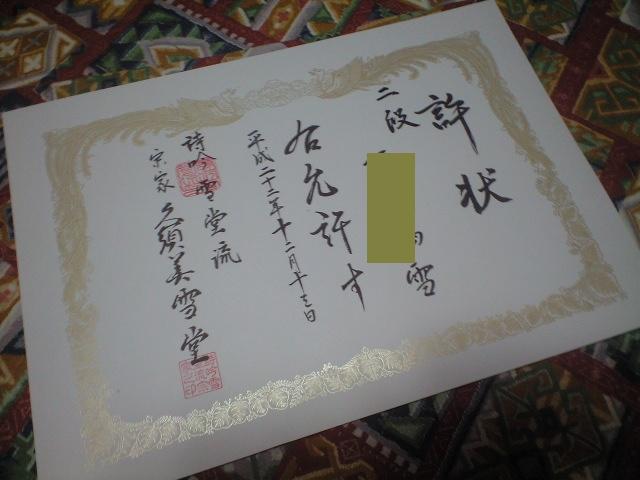 許状
二段
雪
右允許す
平成二十二年十二月十三日
詩吟雪堂流
宗家 久須美雪堂